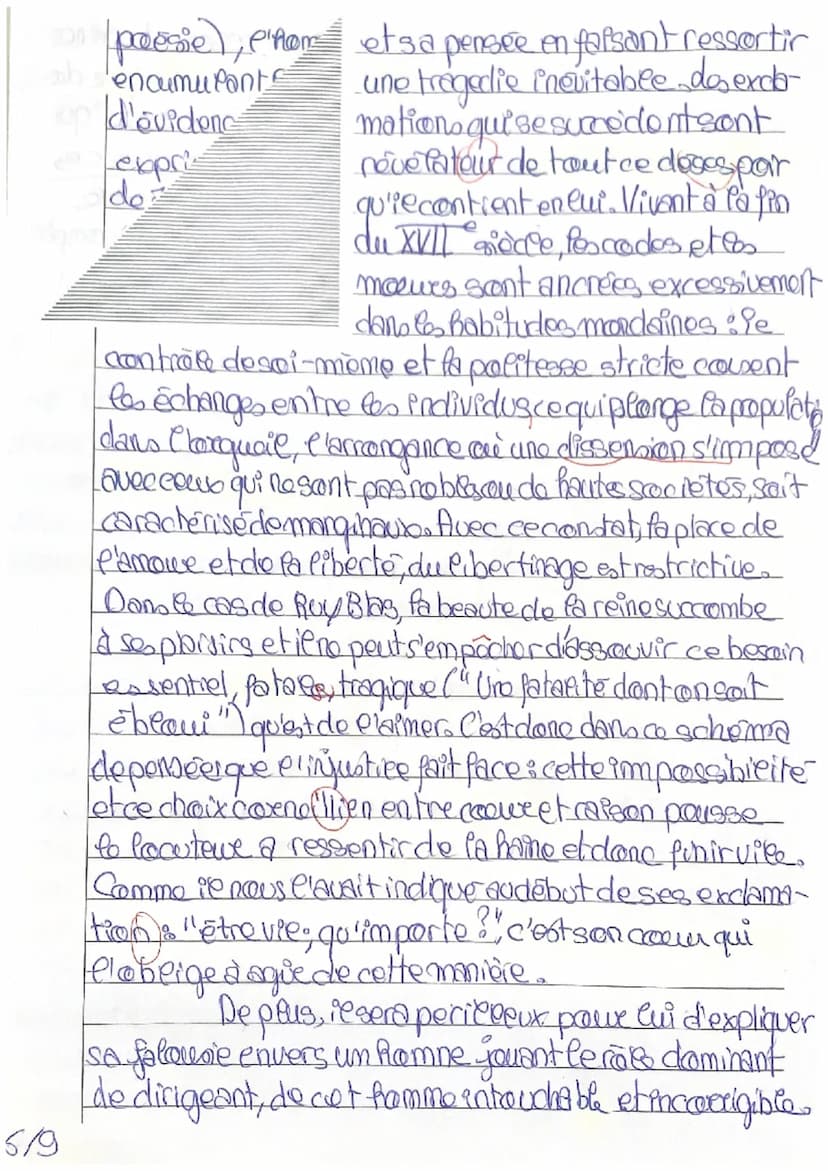 poésie), l'hom
et sa pensée en faisant ressortir
encumulant
une tragédie inévitable. des excla-
d'évidenc
mations qui se succèdent sont
expri
révélateur de tout ce désespoir
de
qu'il contient en lui. Vivant à la fin
du XVII e siècle, les codes et les
mœurs sont ancrées excessivement
dans les habitudes mondaines : le
contrôle de soi-même et la politesse stricte causent
les échanges entre les individus, ce qui plonge la populati
dans l'orgueil, l'arrongance où une dissension s'impose
avec ceux qui ne sont pas nobles ou de hautes sociétés, soit
caractérisé de marginaux. Avec ce constat, la place de
l'amour et de la liberté, du libertinage est restrictive.
Dans le cas de Ruy Blas, la beauté de la reine succombe
à ses plaisirs et il ne peut s'empâcher d'assouvir ce besoin
essentiel, fatale, tragique ("Une fatalité dont on soit
ébloui") qu'est de l'aimer. C'est donc dans ce schéma
de pensée que l'injustice fait face : cette impossibilité
et ce choix cornellien entre cœur et raison pousse
le locuteur a ressentir de la haine et donc finir vile.
Comme il nous l'avait indiqué au début de ses exclama-
tion : "être vil, qu'importe ?", c'est son cœur qui
l'obeige à agir de cette manière.
De plus, il sera perilleux pour lui d'expliquer
sa jalousie envers un homme jouant le rôle dominant
de dirigeant, de cet homme intouchable et incorrigible.
5/9